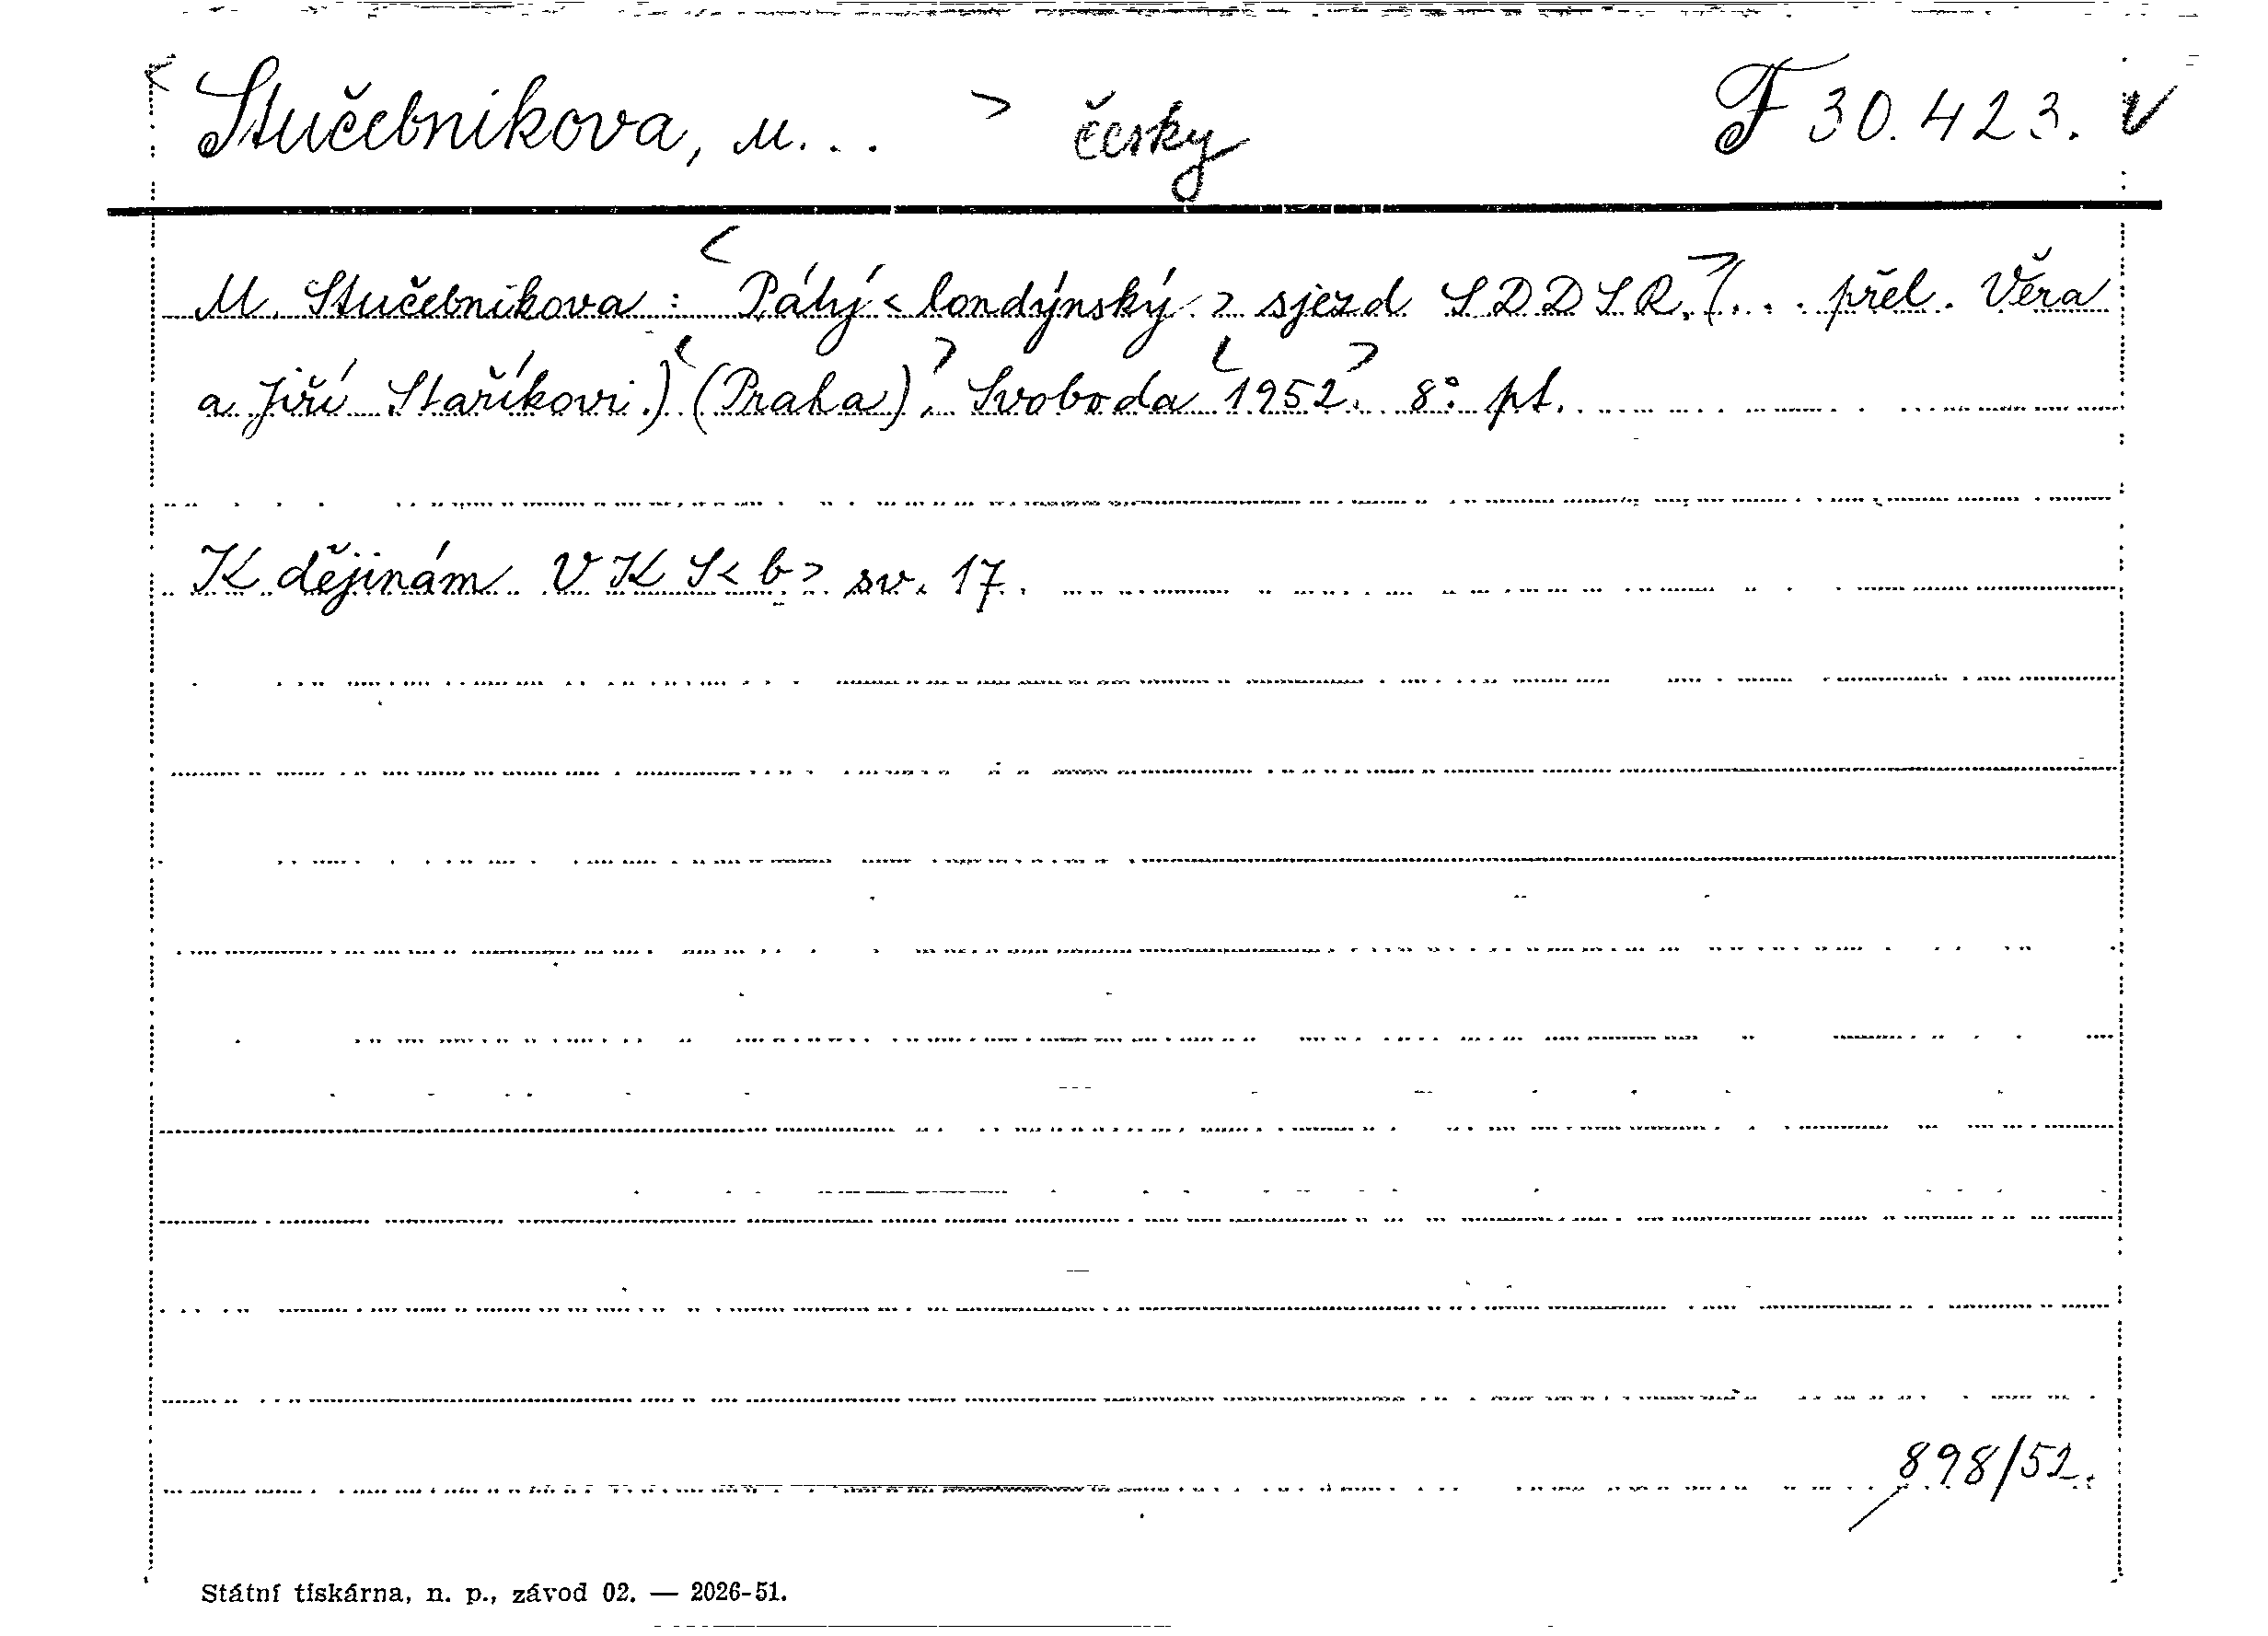 < Stučebnikova, M... > česky F 30.423. v
M. Stučebnikova : < Pátý < londýnský > sjezd SDDSR. > (... přel. Věra
a Jiří Staříkovi.) < (Praha) >, Svoboda < 1952 >. 8° pt.
K dějinám VKS < b > sv. 17.
898/52.
Státní tiskárna, n. p., závod 02. — 2026-51.